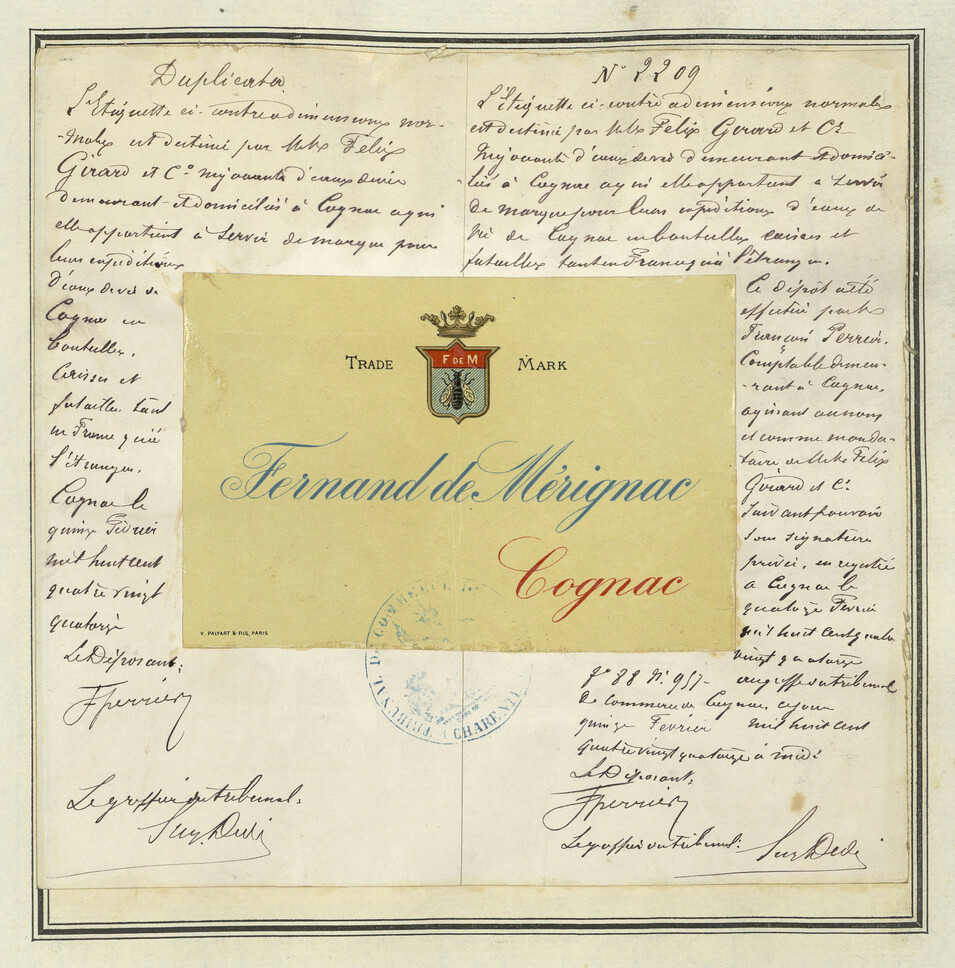 Duplicata
L'Etiquette ci-contre a dimensions nor-
-males est destiné par M.M. Félix
Girard et Co négociants d'eaux de vie
demeurant et domiciliés à Cognac a qui
elle appartient à servir de marque pour
leurs expéditions
d'eaux de vie de
Cognac en
bouteilles,
Caisses et
futailles tant
en France qu'à
l'étranger.
Cognac le
quinze Février
mil huit cent
quatre vingt
quatorze
Le Déposant:
F Perrier
Le greffier du tribunal:
No 2209
L'Etiquette ci-contre a dimensions normales
est destiné par M.M. Félix Girard et Co
Négociants d'eaux de vie demeurant et domici-
-liés à Cognac a qui elle appartient a servir
de marque pour leurs expéditions d'eaux de
vie de Cognac en bouteilles caisses et
futailles tant en France qu'à l'étranger.
Ce dépôt a été
effectué par M.
François Perrier,
Comptable demeu-
-rant à Cognac,
agissant au nom
et comme manda-
taire de M.M. Félix
Girard et Co
suivant pouvoir
sous signature
privée, enregistré
a Cognac le
quatorze Février
mil huit cent quatre
vingt quatorze
fo 88 No. 957- au greffe du tribunal
de commerce de Cognac, ce jour
quinze Février mil huit cent
quatre vingt quatorze à midi
Le Déposant:
F Perrier
Le greffier du tribunal:
TRADE MARK
F DE M
Fernand de Mérignac
Cognac
V. PALYART & FILS, PARIS
TRIBUNAL DE COMMERCE DE
CHARENTE